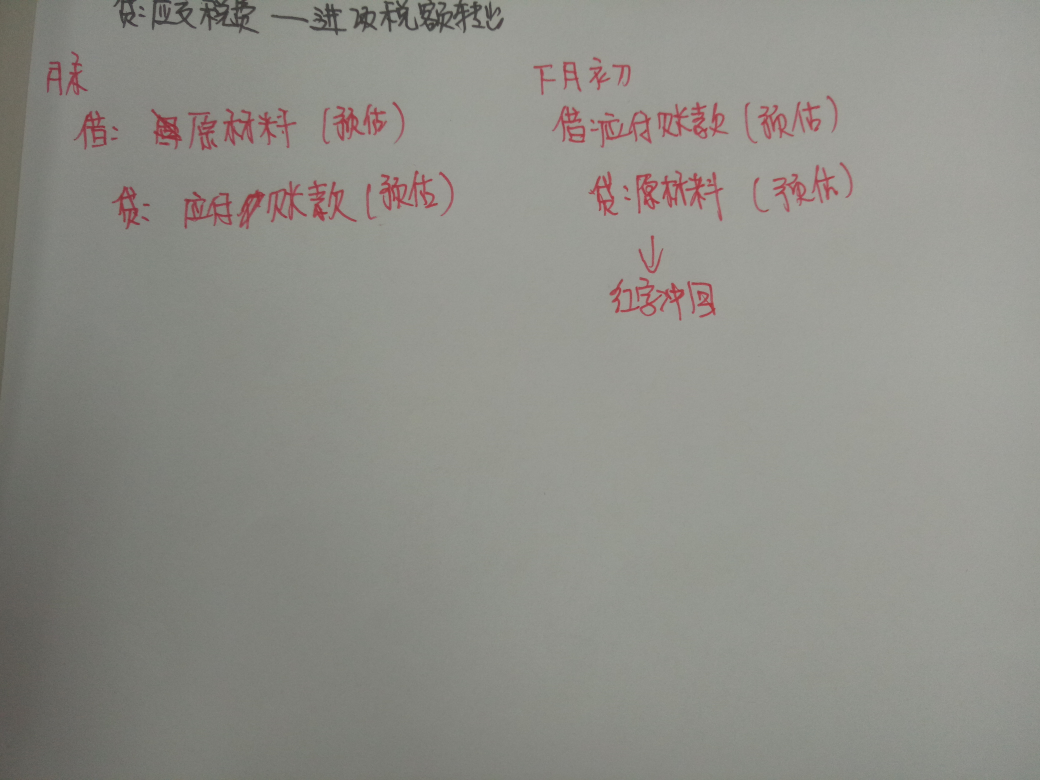 贷:应交税费—进项税额转出
月末
借: 原材料(预估)
贷: 应付账款(预估)
下月初
借:应付账款(预估)
贷:原材料(预估)
↓
红字冲回